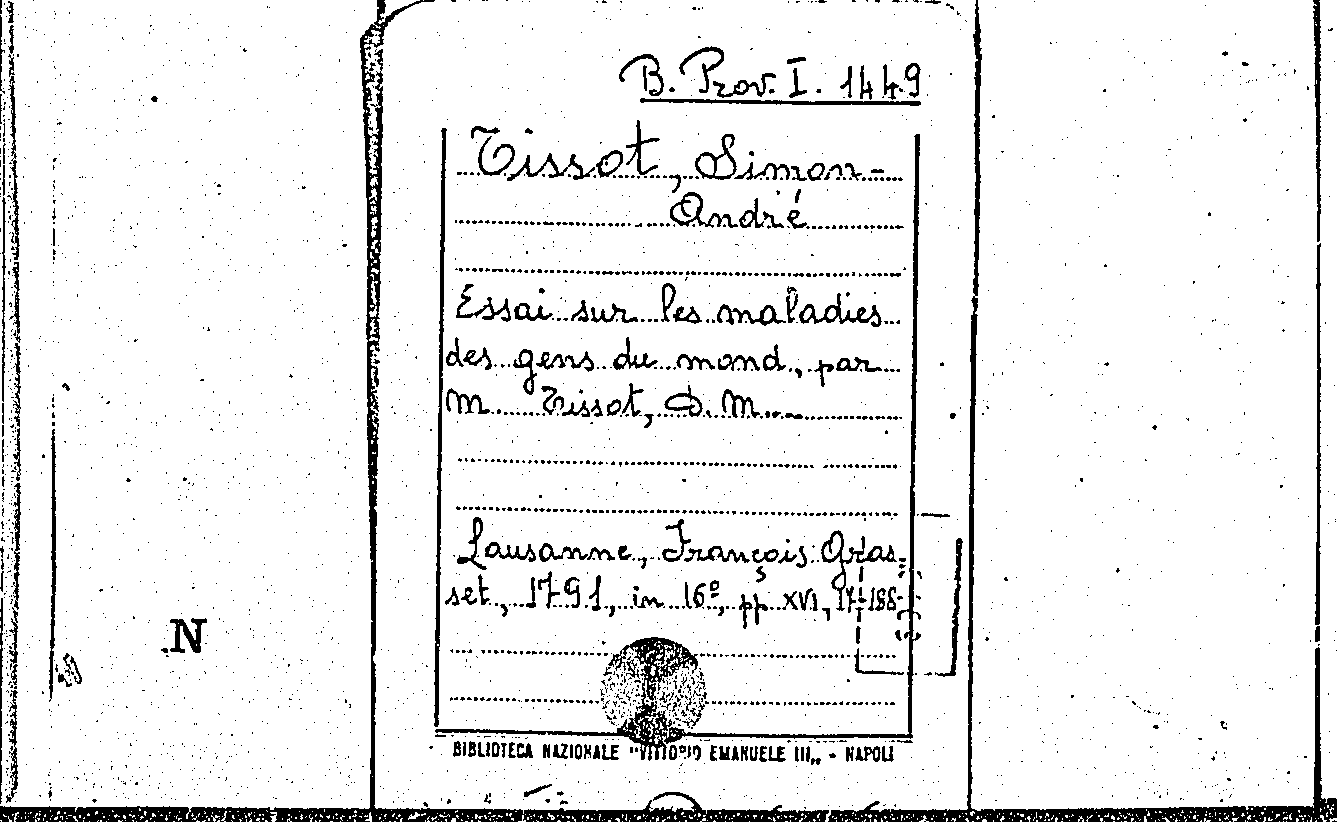 B. Prov. I. 1449
Tissot, Simon-
André
Essai sur les maladies
des gens du mond, par
M. Tissot, D. M...
Lausanne, François Gras-
set, 1791, in 16º, pp XVI, 17-188
N
BIBLIOTECA NAZIONALE "VITTORIO EMANUELE III„ - NAPOLI